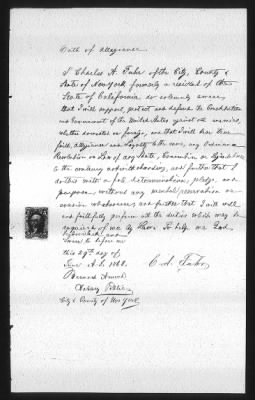 Oath of allegiance
I Charles A. of the City, County &
State of New York formerly a resident of the
State of California do solemnly swear,
that I will support, protect and defend the Constitution
and Government of the United States against all enemies,
whether domestic or foreign, and that I will bear true
faith, allegiance and loyalty to the same, any Ordinance
Resolution or Law of any State, Convention or Legislature
to the contrary notwithstanding, and further that I
do this with a full determination, pledge, and
purpose, without any mental reservation or
evasion whatsoever, and further that I will well
and faithfully perform all the duties which may be
required of me by Law. So help me God.
Subscribed and
Sworn to before me
this 29th day of
June A.D. 1863.
C. A.
Notary Public
City & County of New York